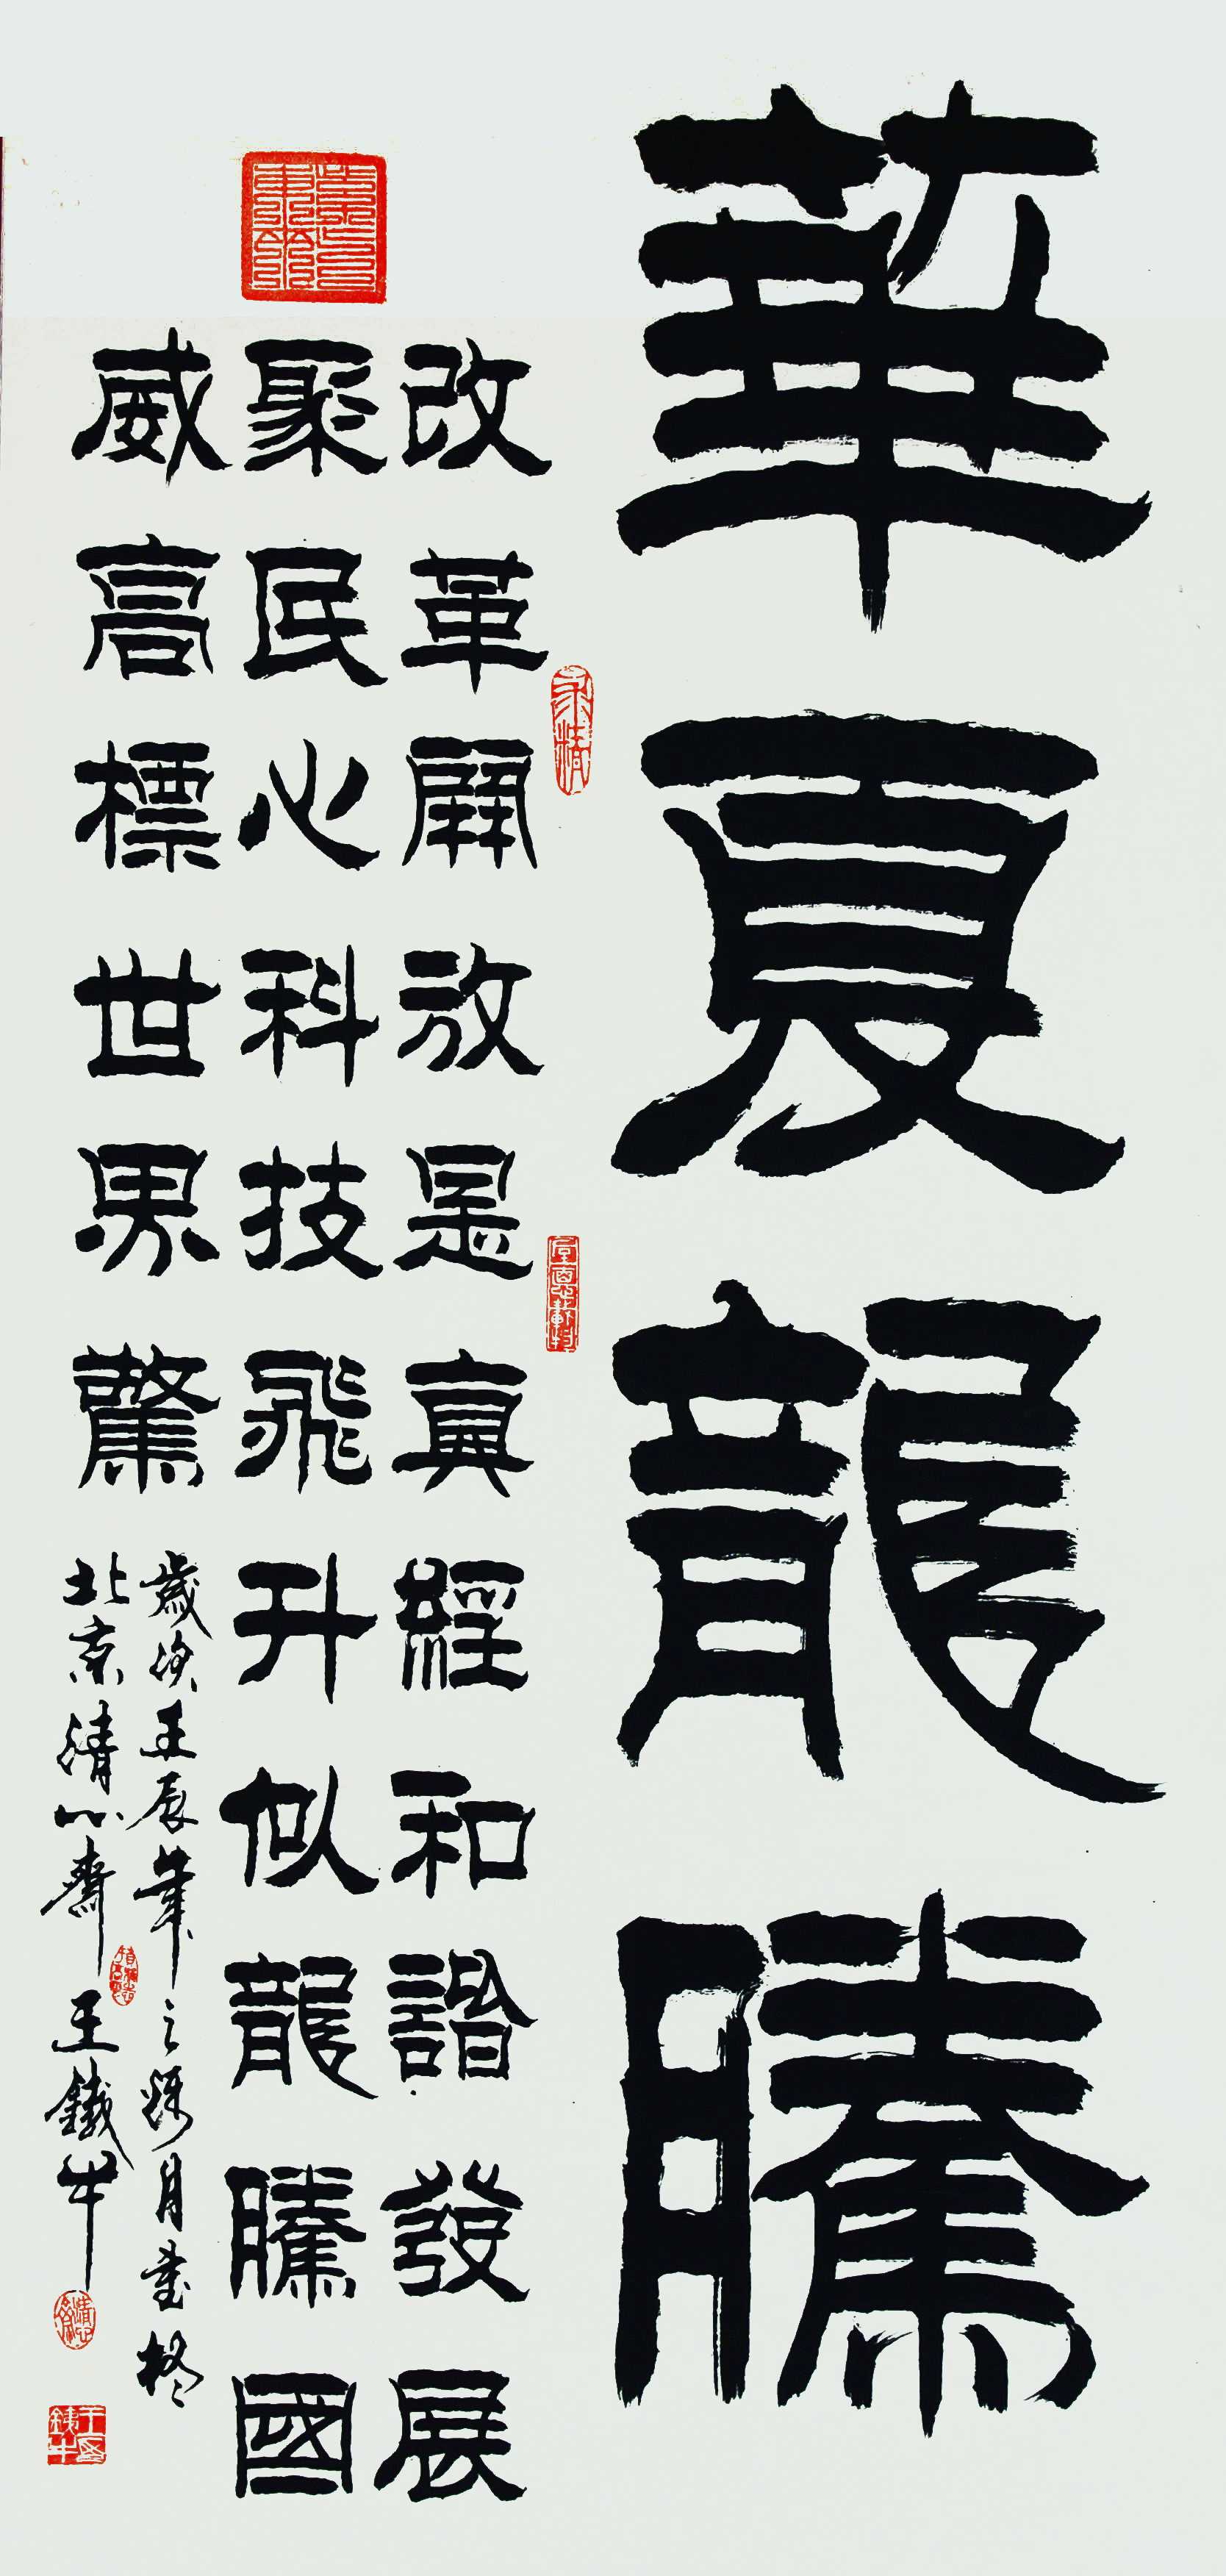 華夏龍騰
改革開放是真經和諧發展
聚民心科技飛升似龍騰國
威高標世界驚
歲次壬辰年之 月書於
北京清心齋王鐵牛